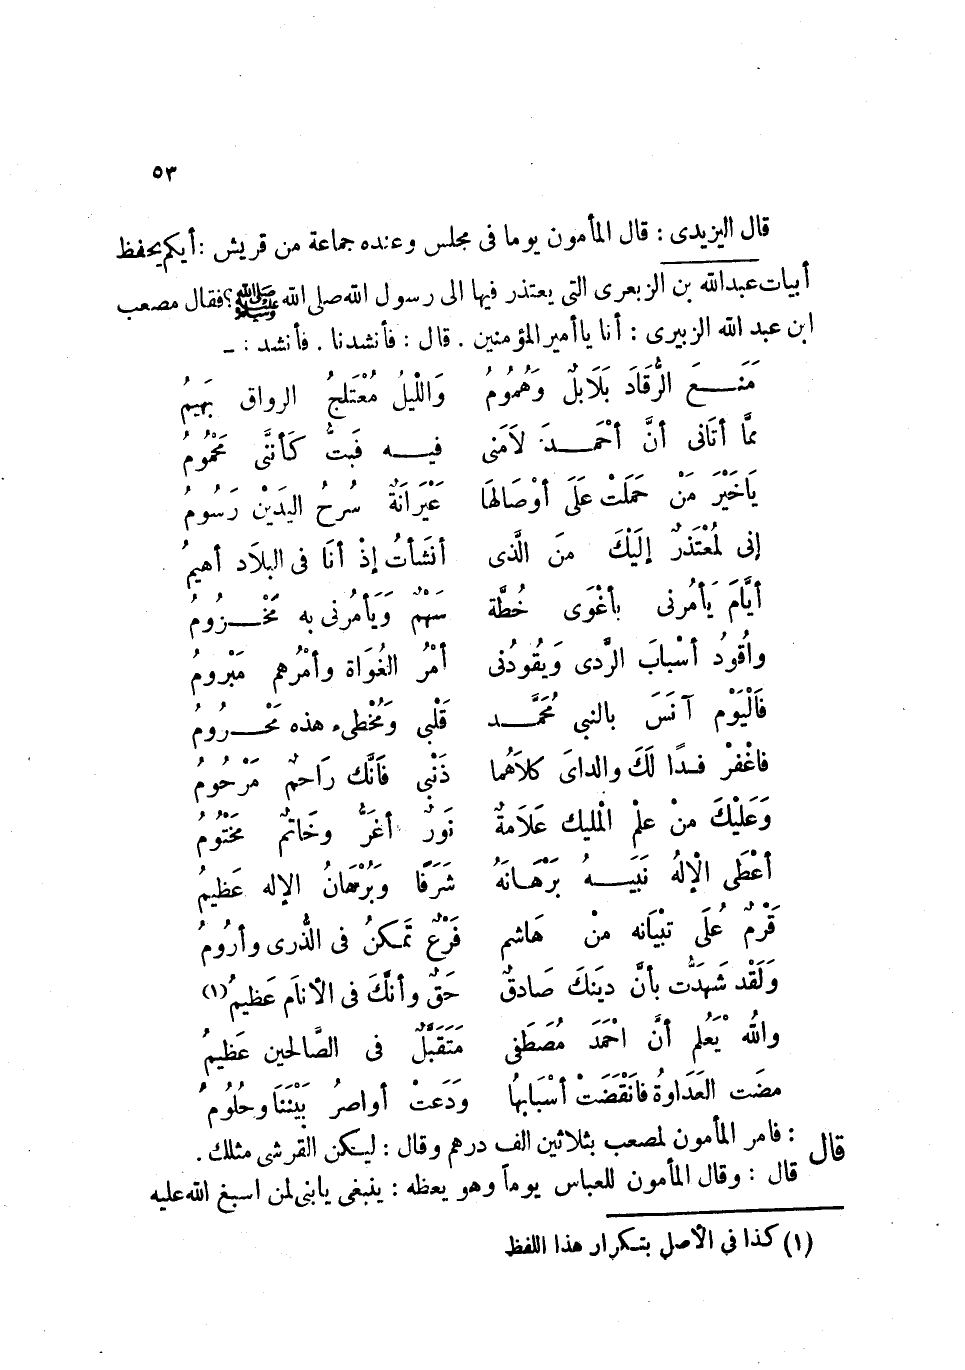 ٥٣
قال اليزيدى : قال المأمون يوما فى مجلس وعنده جماعة من قريش : أيكم يحفظ
أبيات عبدالله بن الزبعرى التى يعتذر فيها الى رسول الله صلى الله ﷺ؟ فقال مصعب
ابن عبد الله الزبيرى : أنا ياأمير المؤمنين . قال : فأنشدنا . فأنشد : ـ
مَنَــعَ الرُّقَادَ بَلَابلٌ وَهُمُومُ وَاللَّيلُ مُعْتَلجُ الرواق بَهيمُ
ممَّا أتَانى أنَّ أحْمَــدَ لاَمَنى فيــه فَبتُّ كَأنَّنى مَحْمُومُ
يَاخَيْرَ مَنْ حَمَلَتْ عَلَى أوْصَالهَا عَيْرَانَةٌ سُرحُ اليدَيْن رَسُومُ
إنى لَمُعْتَذرٌ إلَيْكَ منَ الَّذى أنشَأتُ إذْ أنَا فى البلَاد أهيمُ
أيَّامَ يَأمُرنى بأغْوَى خُطَّة سَهْمٌ وَيَأمُرنى به مَخْــزُومُ
وأقُودُ أسْبابَ الرَّدى وَيقُودُنى أمْرُ الغُوَاة وأمْرُهم مَبْرومُ
فَالْيَوْم آنَسَ بالنبى مُحَمَّــد قَلْبى وَمُخْطىء هذه مَحْــرُومُ
فاغْفرْ فــدًا لَكَ والداىَ كلاَهُما ذَنْبى فَانَّكَ رَاحمٌ مَرْحُومُ
وَعَلَيْكَ منْ علْم الْمليك عَلَامةٌ نَورٌ أغَرُّ وخَاتمٌ مَخْتُومُ
أعْطَى الْإلهُ نَبيَــهُ بَرْهَـانَهُ شَرَفًا وَبُرْهَانُ الإله عَظيمُ
قَرْمٌ عُلَى تبْيَانه منْ هَاشم فَرْعٌ تَمَـكنُ فى الذُّرى وأرُومُ
وَلَقْد شَهدَتُ بأنَّ دينَكَ صَادقٌ حَقٌ وأنَّكَ فى الأنَام عَظيمُ (١)
والله يَعْلم أنَّ احْمَدَ مُصَطَفى مَتَقَبَّلٌ فى الصَّالحين عَظيمُ
مضَت العَدَاوةُ فَانْقَضَتْ أسْبَابهُا ودَعَتْ أواصرُ بَيْنَنَا وحُلُومُ
قال : فامر المأمون لمصعب بثلاثين الف درهم وقال : ليـكن القرشى مثلك .
قال : وقال المأمون للعباس يوماً وهو يعظه : ينبغى يابنى لمن اسبغ الله عليه
(١) كذا فى الأصل بتـكرار هذا اللفظ